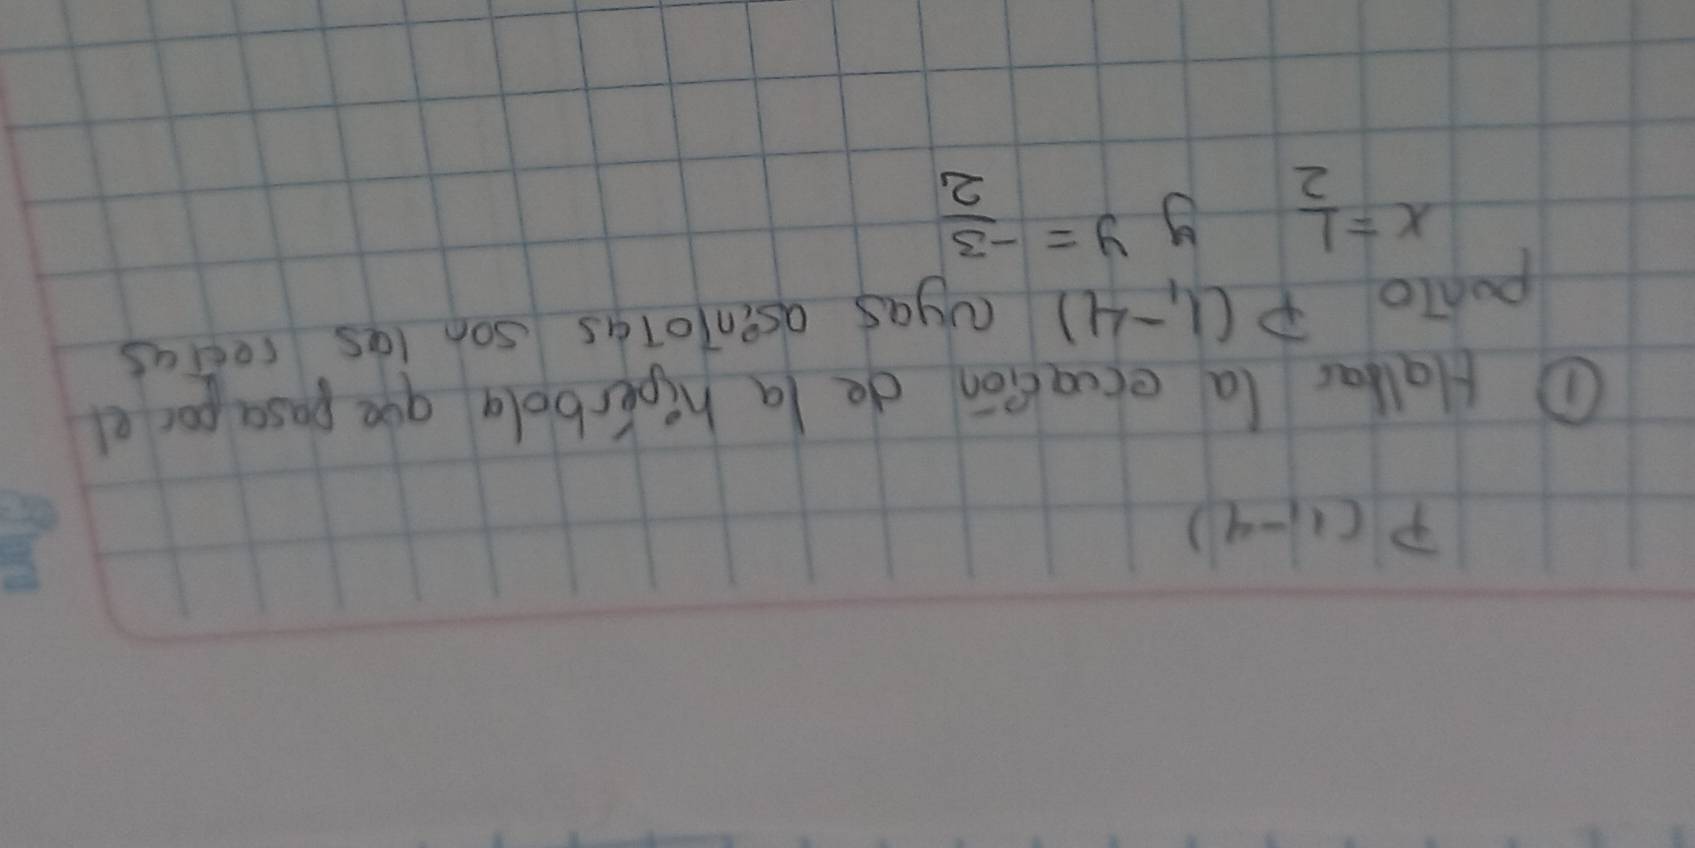 P(1,-4)
① Hallar la ecuación de la hipérbola que pasa por el
punto P(1,-4) cuyas asíntotas son las rectas
x = 1/2 y y = -3/2